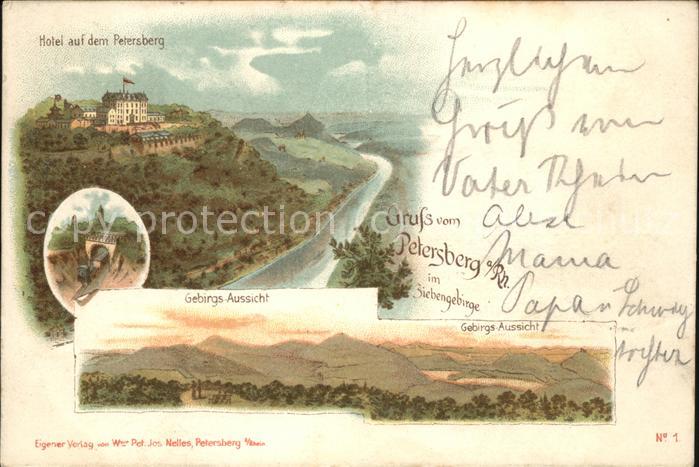 Hotel auf dem Petersberg
Herzlichen
Gruß von
Vater Rhein
Gruſs vom
Petersberg a/Rh.
im
Siebengebirge
Mama
Papa u Schwieg
tochter
Gebirgs-Aussicht
Gebirgs-Aussicht
Eigener Verlag von Wwe Pet. Jos. Nelles, Petersberg a/Rhein
No 1.
copyright protection Ansichtskarten